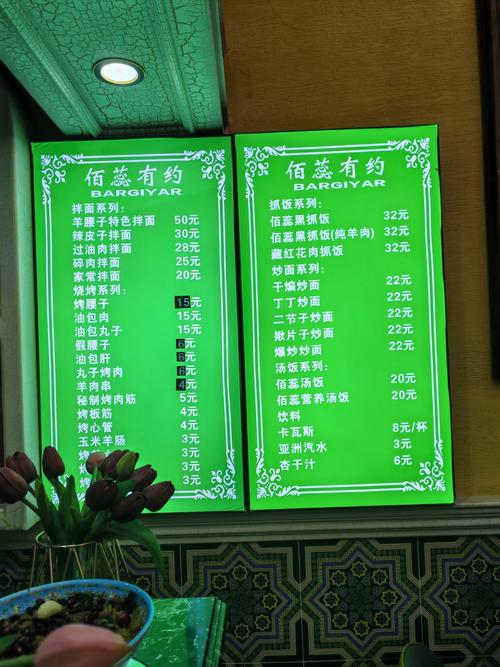 佰蕊有约
BARGIYAR
拌面系列:
羊腰子特色拌面 50元
辣皮子拌面 30元
过油肉拌面 28元
碎肉拌面 25元
家常拌面 20元
烧烤系列:
烤腰子 15元
油包肉 15元
油包丸子 15元
假腰子 6元
油包肝 6元
丸子烤肉 6元
羊肉串 4元
秘制烤肉筋 5元
烤板筋 4元
烤心管 4元
玉米羊肠 3元
烤 3元
烤 3元
3元
佰蕊有约
BARGIYAR
抓饭系列:
佰蕊黑抓饭 32元
佰蕊黑抓饭(纯羊肉) 32元
藏红花肉抓饭 32元
炒面系列:
干煸炒面 22元
丁丁炒面 22元
二节子炒面 22元
揪片子炒面 22元
爆炒炒面 22元
汤饭系列:
佰蕊汤饭 20元
佰蕊营养汤饭 20元
饮料
卡瓦斯 8元/杯
亚洲汽水 3元
杏干汁 6元